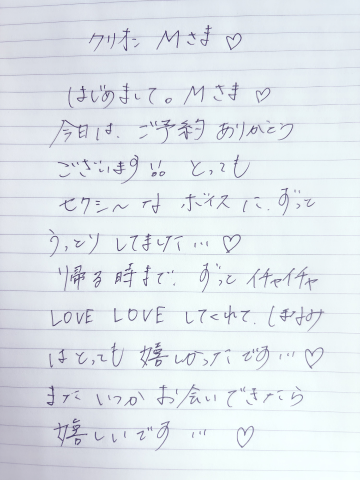 クリオン Mさま ♡
はじめまして。Mさま ♡
今日は、ご予約ありがとう
ございます!! とっても
セクシ〜な ボイスに、ずっと
うっとりしてました… ♡
帰る時まで、ずっとイチャイチャ
LOVE LOVE してくれて、ほなみ
はとっても嬉しかったです… ♡
またいつかお会いできたら
嬉しいです … ♡